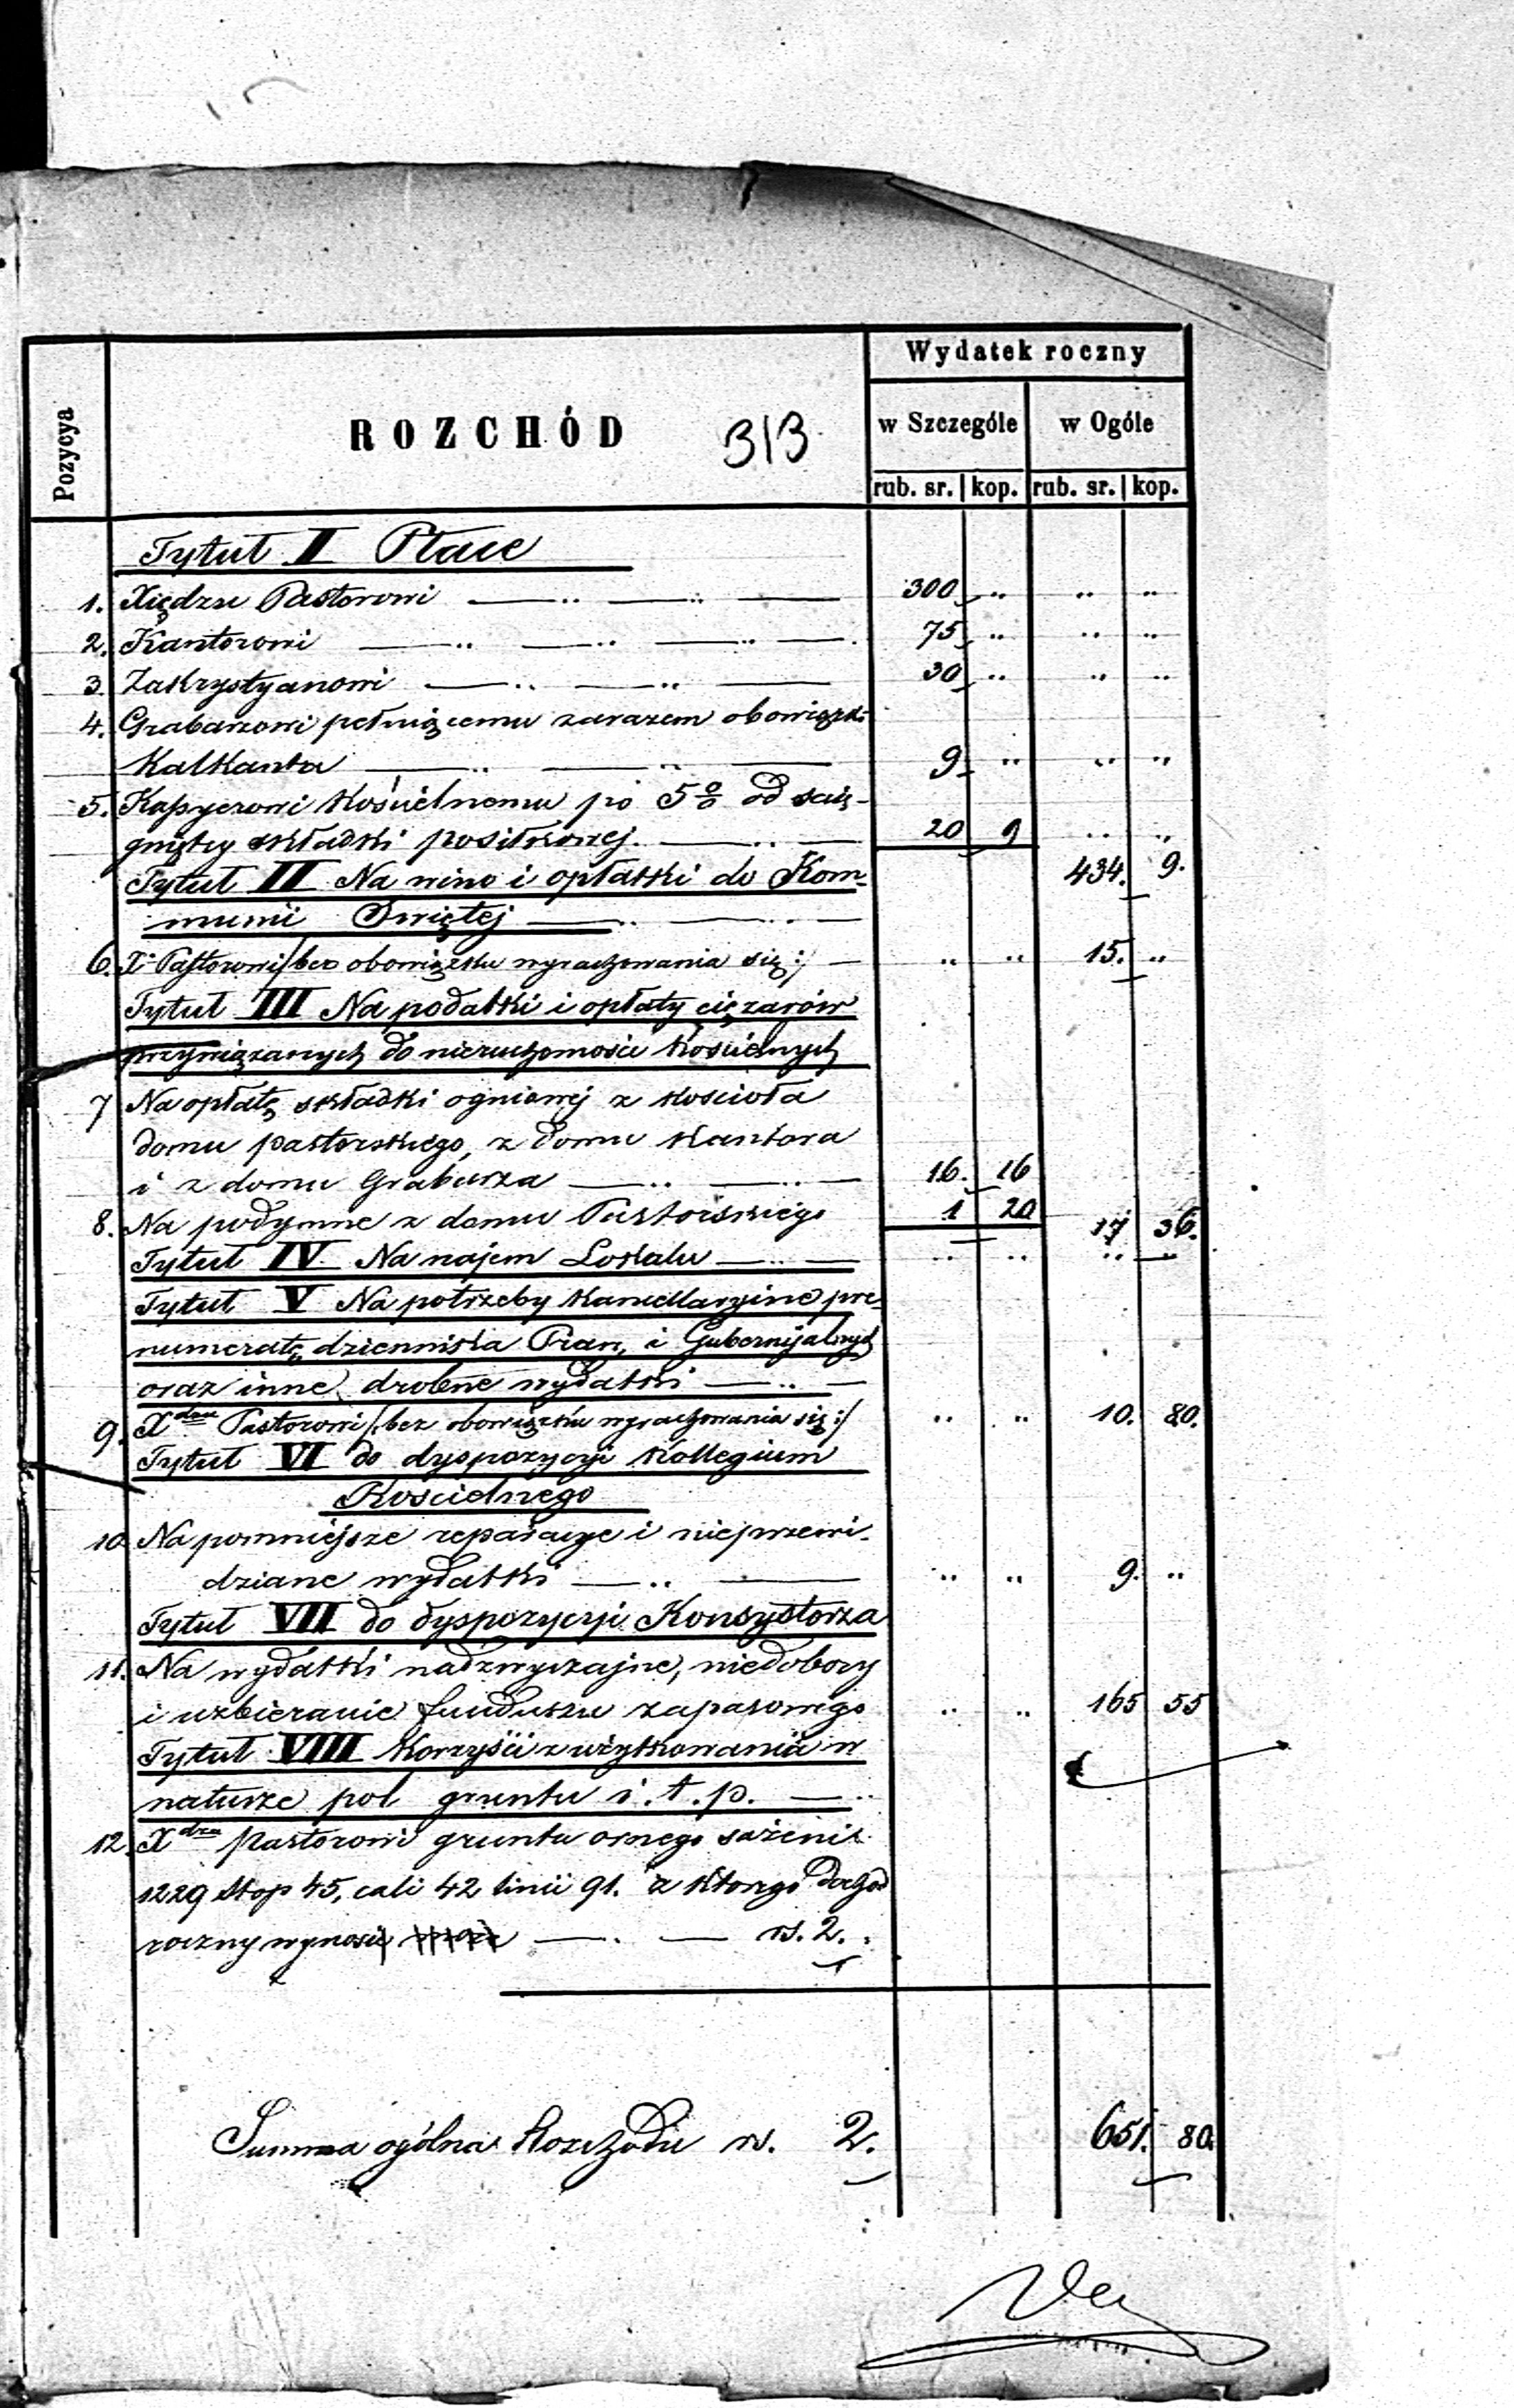 Pozycya
ROZCHÓD
313
Wydatek roczny
w Szczególe
w Ogóle
rub. sr. kop. rub. sr. kop.
Tytuł II Płace
1. Xiędzu Pastorowi 300 " " "
2. Kantorowi 75 " " "
3. Zakrystyanowi 30 " " "
4. Grabarzowi pełniącemu zarazem obowiązki
Kalkanta 9 " " "
5. Kassyerowi Kościelnemu po 5% od scią-
gniętey składki positkowej. 20 9 " "
434. 9.
Tytuł II Na wino i opłatki do Kom-
munii Swiętej
6. X. Pastorowi /bez obowiązku wyrachowania się:/ " " 15. "
Tytuł III Na podatki i opłaty ciężarów
przywiązanych do nieruchomości Kościelnych
7 Na opłatę składki ogniowej z Kościoła
domu pastorskiego, z domu Kantora
i z domu Grabarza 16. 16
8. Na podymne z domu Pastorskiego 1 20 17 36.
Tytuł IV. Na najem Lokalu " " " "
Tytuł V Na potrzeby Kancellaryine pre-
numeratę dziennika Praw, i Gubernijalnych
oraz inne drobne wydatki
9. Xdzu Pastorowi /:bez obowiązku wyrachowania się:/ " " 10. 80.
Tytuł VI do dyspozycyi Kollegium
Koscielnego
10 Na pomniejsze reparacye i nieprzewi-
dziane wydatki " " 9. "
Tytuł VII do dyspozycyi Konsystorza
11. Na wydatki nadzwyczajne, niedobory
i uzbieranie funduszu zapasowego " " 165 55
Tytuł VIII Korzyści z użytkowania w
naturze pol gruntu i.t.p.
12. Xdzu Pastorowi gruntu ornego sażeni
1229 stop 45, cali 42 linii 91. z Ktorego dochód
roczny wynosi rs. 2.
Summa ogólna Rozchodu rs. 2. 651. 80.